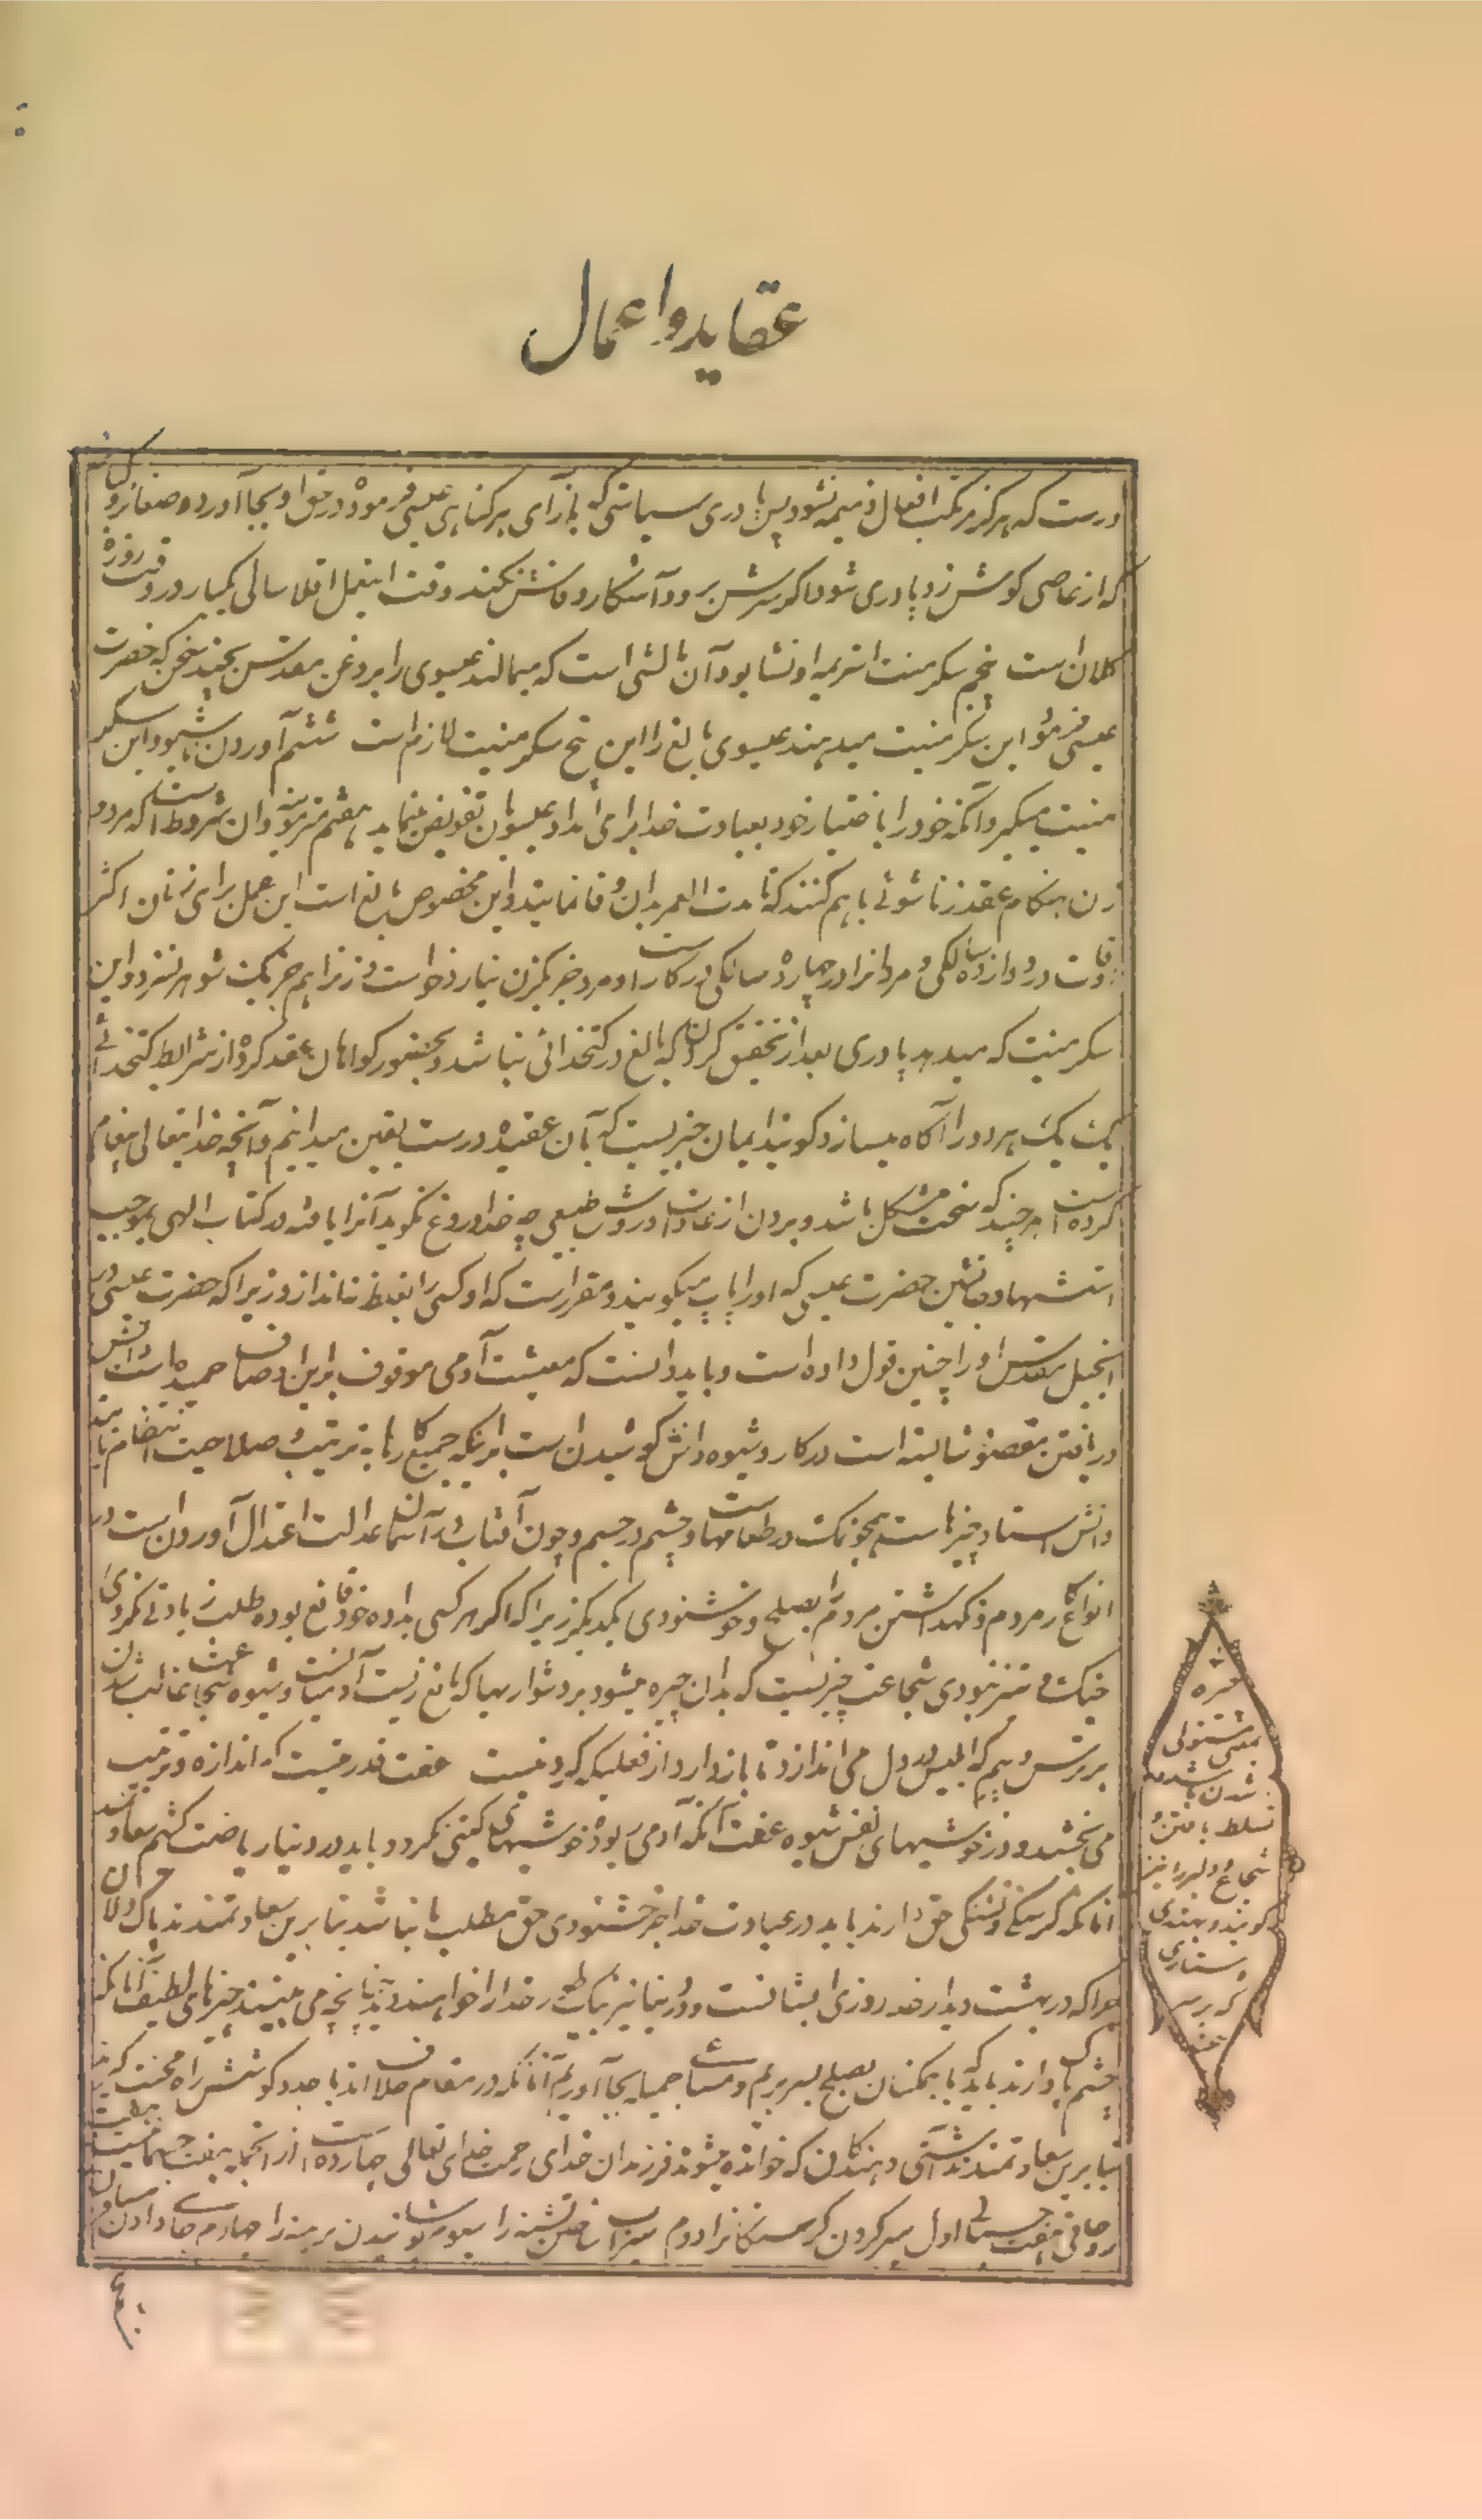 عقاید و اعمال
درست که هرگز مرتکب افعال ذمیمه نشود پس پادری سیاستی که بازای هر گناهی عیسی فرموده در حق او بجا آورد و صغائر و
که از عاصی گوش زد پادری شود اگر سرش برود آشکار و فاش نکند وقت این عمل اقلا سالی یکبار در وقت روزهٔ
کلان است پنجم سکرمنت استریمه اونشا بود آن مالشی است که میمالند عیسوی را بروغن مقدس بچند سخن که حضرت
عیسی فرموده این سکرمنت میدهند عیسوی بالغ را این پنج سکرمنیت لازم است ششم آوردن بود این سکر
منیت میگیرد آنکه خود را باختیار خود بعبادت خدا برای امداد عیسویان تفویض نماید هفتم و آن شروط است که مرد و
زن هنگام عقد زناشوئی با هم کنند که تا مدت العمر بدان وفا نمایند و این مخصوص بالغ است این عمل برای زنان اکثر
اوقات در دوازده سالگی و مردانرا در چهارده سالگی در کار است و مرد جز یکزن نیارد خواست و زنرا هم جز یک شوهر نسزد و این
سکرمنیت که میدهد پادری بعد از تحقیق کردن که بالغ در کتخدائی بنا شد و بحضور گواهان عقد کرده از شرایط کتخدائی
یک یک هر دو را آگاه میسازد گویند ایمان چیزیست که بآن عقیده درست یقین میدانیم آنچه خدایتعالی پیغام
کرده است هر چند که سخت مشکل باشد و برون از عادت و روش طبیعی چه خدا دروغ نگوید آنرا یافته در کتاب الهی بموجب
استشهاد جانشین حضرت عیسی که او را پاپ میگویند و مقرر است که او کسی را بغلط نیاندازد زیرا که حضرت عیسی در
انجیل مقدس او را چنین قول داده است و باید دانست که معیشت آدمی موقوف بر این اوصاف حمیده است دانش
دریافتن مقصد شایسته است در کار و شیوه دانش کوشیدن است بر اینکه جمیع کارها به ترتیب و صلاحیت انتظام یابند
دانش استاد چیزها است همچو نمک در طعامها و چشم در جسم و چون آفتاب در آسمان عدالت اعتدال آوردن است در
انواع کار مردم و نگهداشتن مردم را بصلح و خوشنودی یکدیگر زیرا که اگر هر کسی بداده خود قانع بوده طلب زیادتی نکردی
جنگ و نبودی شجاعت چیزیست که بدان چیره میشود بر دشواریها که مانع زیست آدمیانست و شیوه شجاعت غالب شدن
بر ترس و بیم که ابلیس در دل می اندازد تا باز دارد از فعلیکه کردنیست عفت قدرتیست که اندازه و ترتیب
می بخشد در خوشیهای نفس شیوه عفت آنکه آدمی ربوده خوشیهای گیتی نگردد باید در دنیا ریاضت کشیم سعادتمند
آنانکه گرسنگی و تشنگی حق دارند باید در عبادت خدا جز خوشنودی حق مطلب ما نباشد بنابرین سعادتمندند پاک دلان
چرا که در بهشت دیدار خدا روزی ایشانست و در دنیا نیز خدا را خواهند دید چنانچه می بینند چیزهای لطیف آنانکه
چشم پاک دارند باید که با همگنان بصلح بسر بریم و مساعی جمیله بجا آوریم آنانکه در مقام صلاح اند با جد و کوشش راه محبت گیرند
بنابرین سعادتمندند آشتی دهندگان که خوانده میشوند فرزندان خدای رحمت خدای تعالی چهارده است از آنجمله هفت جسمانیست و هفت
روحانی هفت جسمانی اول سیر کردن گرسنگانرا دوم سیراب ساختن تشنه را سیوم پوشانیدن برهنه را چهارم جا دادن مسافران
چیره
بمعنی مستولی
شدن باشد و
تسلط یافتن و
شجاع و دلیر را نیز
گویند و بهندی
دستاری
که بر سر